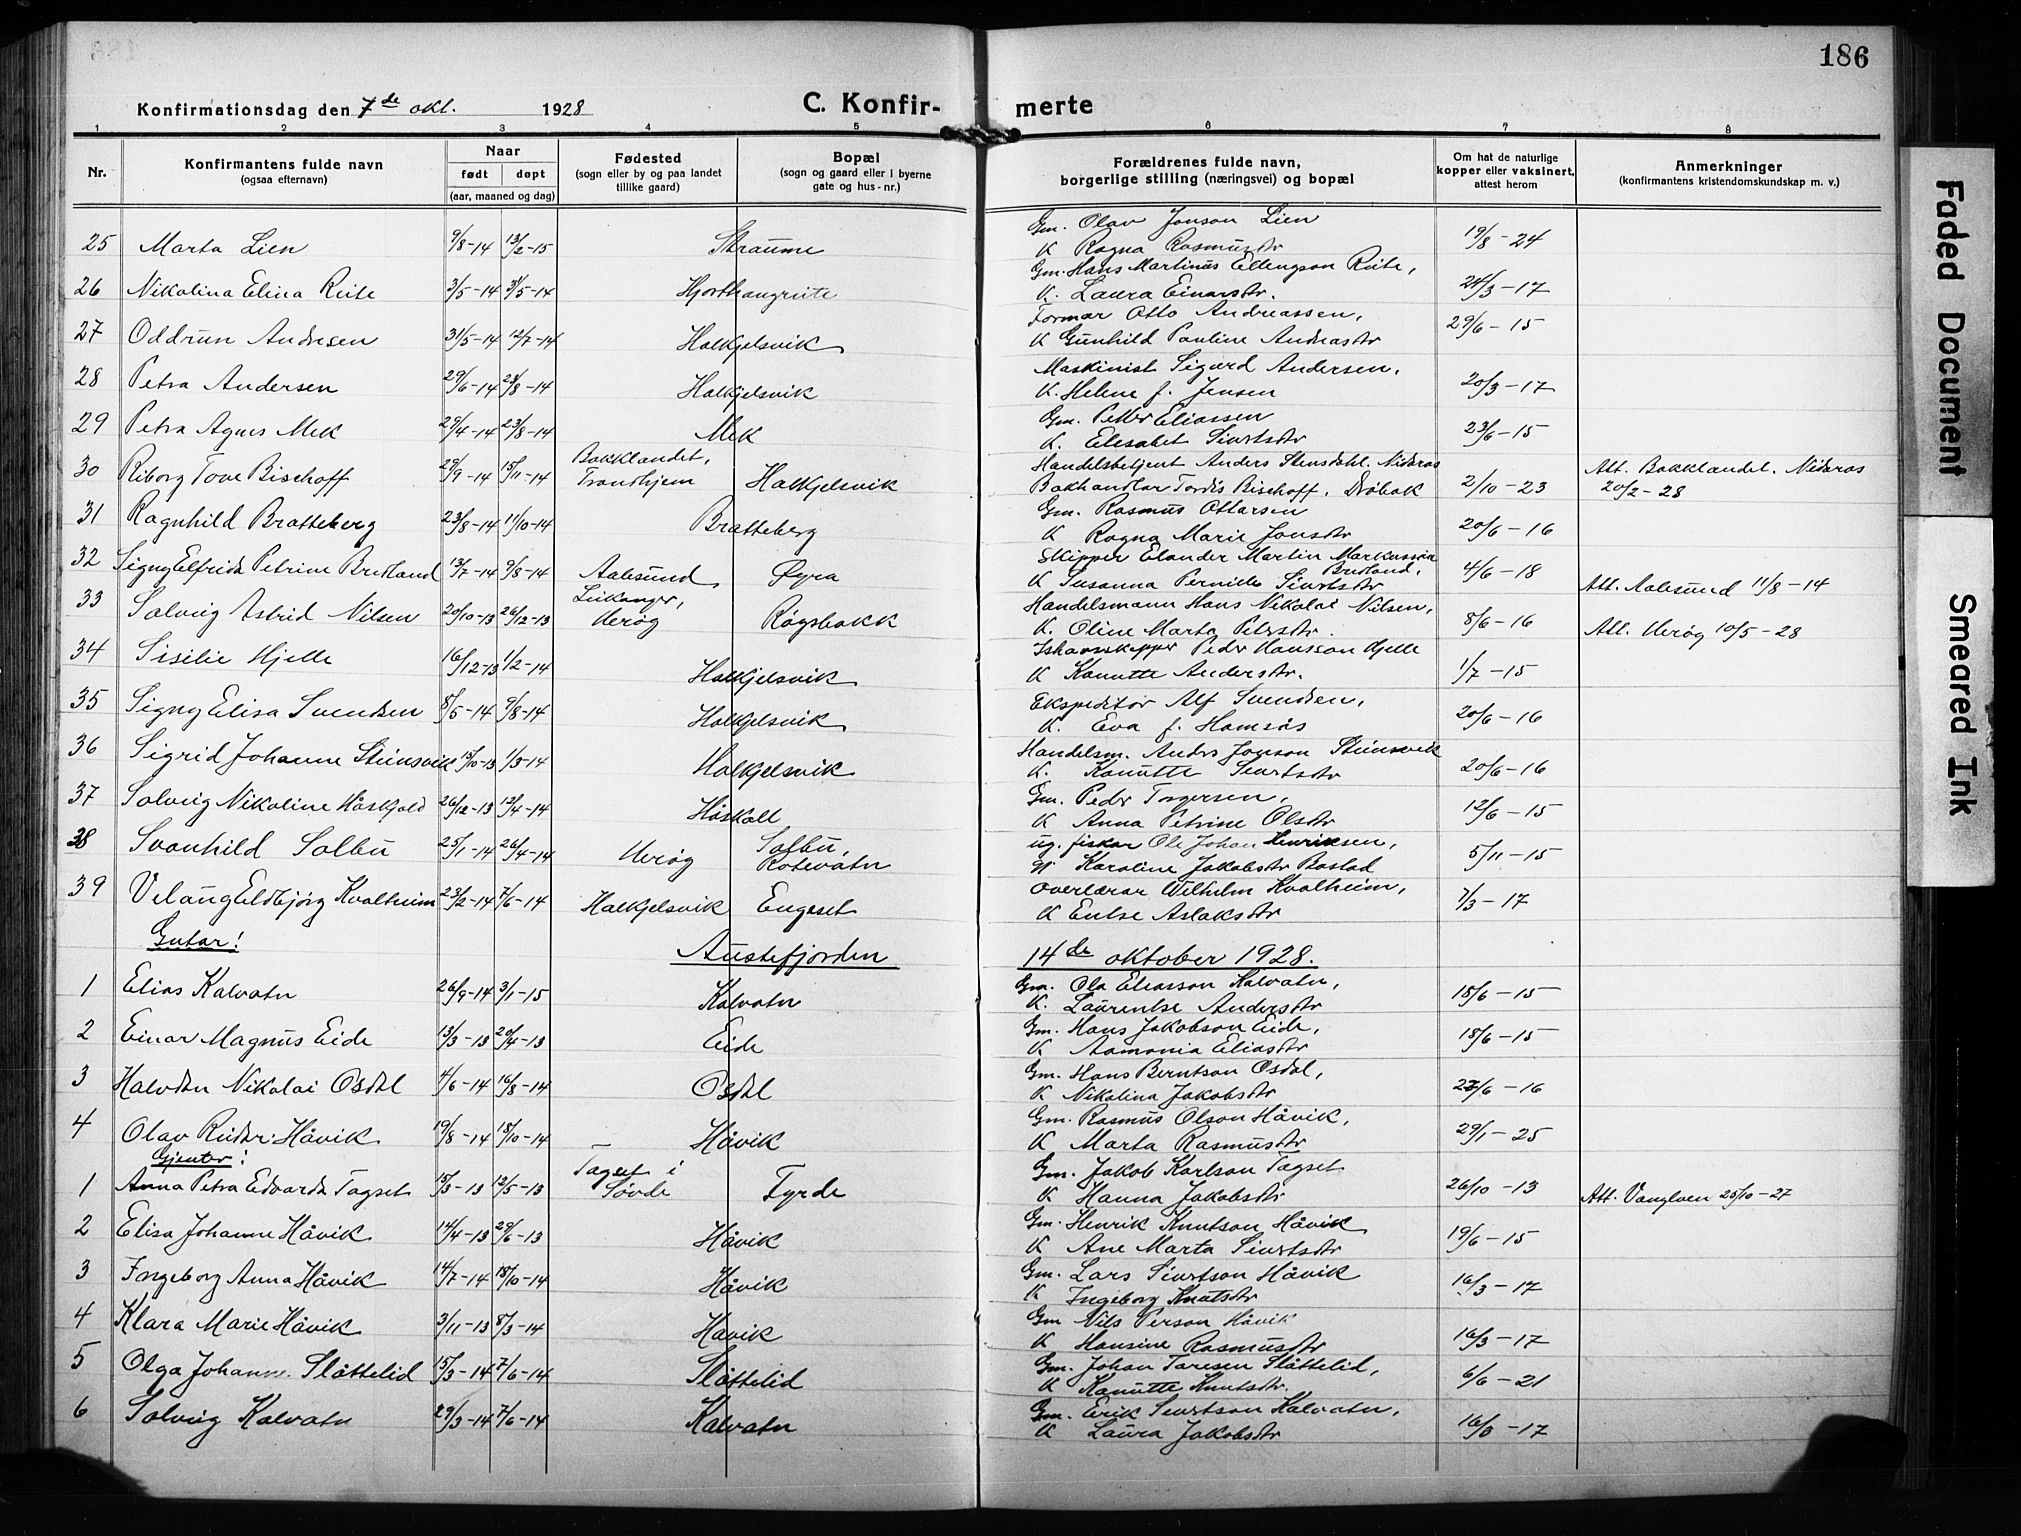 186
Konfirmationsdag den 7de okt. 1928
C. Konfir-merte
1 2 3 4 5 6 7 8
Nr.
Konfirmantens fulde navn
(ogsaa efternavn)
Naar
født døpt
(aar, maaned og dag)
Fødested
(sogn eller by og paa landet
tillike gaard)
Bopæl
(sogn og gaard eller i byerne
gate og hus-nr.)
Forældrenes fulde navn,
borgerlige stilling (næringsvei) og bopæl
Om hat de naturlige
kopper eller vaksinert,
attest herom
Anmerkninger
(konfirmantens kristendomskundskap m. v.)
25 Marta Lien 9/8-14 13/2-15 Straume Gm. Olav Jonson Lien 19/8-24
K Ragna Rasmusdtr
26 Nikolina Elina Riite 3/5-14 31/5-14 Hjorthaugriite Gm. Hans Martinus Ellengson Riite, 24/3-17
K. Laura Einarsdtr.
27 Oddrun Andresen 31/5-14 12/7-14 Halkjelsvik Formar Otto Andreassen, 29/6-15
K Gunhild Pauline Andreasdtr
28 Petra Andersen 29/6-14 23/8-14 Halkjelsvik Maskinist Sigurd Andersen, 20/3-17
K. Helene f. Jensen
29 Petra Agnes Mek 29/4-14 23/8-14 Mek Gm. Petter Eliassen 23/6-15
K. Elesabet Sivertsdtr
30 Riborg Tove Bischoff 29/9-14 15/11-14 Bakklandet, Trondhjem Halkjelsvik Handelsbetjent Anders Stensdahl. Nidaros 2/10-23 Att. Bakklandet. Nidaros
Bokhandlar Tordis Bischoff, Drøbak 20/2-28
31 Ragnhild Bratteberg 23/8-14 11/10-14 Bratteberg Gm. Rasmus Ottarsen 20/6-16
K Ragna Marie Jonsdtr
32 Signy Elfrida Petrine Brudland 13/7-14 9/8-14 Aalesund Øyra Skipper Elander Martin Markusson Brudland, 4/6-18 Att. Aalesund 11/8-14
K Susanna Pernille Sivertsdtr
33 Solveig Astrid Nilsen 20/10-13 26/12-13 Leikanger, Herøy Røysbakk Handelsmann Hans Nikolai Nilsen, 8/6-16 Att. Herøy 10/5-28
K. Oline Marta Petersdtr.
34 Sisilie Hjelle 16/12-13 1/2-14 Halkjelsvik Ishavsskipper Peder Hansson Hjelle 1/7-15
K Kanutte Andersdtr.
35 Signy Elisa Svendsen 8/5-14 9/8-14 Halkjelsvik Ekspeditør Alf Svendsen, 20/6-16
K. Eva f. Hamsås
36 Sigrid Johanne Steinsvik 15/10-13 1/3-14 Halkjelsvik Handelsm. Anders Jonson Steinsvik 20/6-16
K. Kanutte Sivertsdtr
37 Solveig Nikoline Håskjold 26/12-13 13/4-14 Håskall Gm. Peder Torgersen, 12/6-15
K Anna Petrine Olsdtr
38 Svanhild Solbu 25/1-14 26/4-14 Herøy Solbu, Rotevatn ug. fiskar Ole Johan Henriksen, 5/11-15
gj Karoline Jakobsdtr Bostad
39 Velaug Eldbjørg Kvalheim 23/2-14 7/6-14 Halkjelsvik Engeset Overlærar Wilhelm Kvalheim, 7/3-17
K Entse Aslaksdtr
Gutar!
Austefjorden 14de oktober 1928.
1 Elias Kalvatn 26/9-14 3/1-15 Kalvatn Gm. Ola Eliasson Kalvatn, 18/6-15
K. Laurentse Andersdtr
2 Einar Magnus Eide 13/3-13 20/4-13 Eide Gm. Hans Jakobson Eide, 18/6-15
K Aamonia Eliasdtr
3 Halvdan Nikolai Osdal 4/6-14 16/8-14 Osdal Gm. Hans Berntson Osdal, 27/6-16
K Nikolina Jakobsdtr
4 Olav Reidar Håvik 19/8-14 18/10-14 — Håvik Gm. Rasmus Olson Håvik, 29/1-25
K Marta Rasmusdtr
Gjenter!
1 Anna Petra Edvarda Tagset 15/3-13 12/5-13 Tagset i Søvde Fyrde Gm. Jakob Karlson Tagset 26/10-13 Att. Vanylven 25/10-27
K Hanna Jakobsdtr
2 Elisa Johanne Håvik 14/4-13 29/6-13 Håvik Gm. Henrik Knutson Håvik 19/6-15
K Ane Marta Sivertsdtr
3 Ingeborg Anna Håvik 14/7-14 18/10-14 Håvik Gm. Lars Sivertson Håvik 16/3-17
K Ingeborg Knutsdtr
4 Klara Marie Håvik 3/11-13 8/3-14 Håvik Gm Nils Person Håvik 16/3-17
K Hansine Rasmusdtr
5 Olga Johanne Slåttelid 15/3-14 7/6-14 Slåttelid Gm. Johan Taresen Slåttelid, 6/6-21
K Kanutte Knutsdtr.
6 Solveig Kalvatn 29/3-14 7/6-14 Kalvatn Gm. Erik Sivertson Kalvatn, 16/3-17
K Laura Jakobsdtr
Faded Document
Smeared Ink